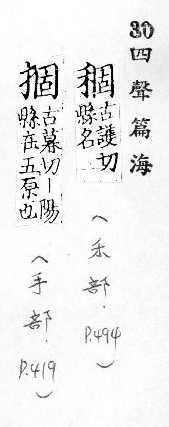 30 四聲篇海
稒 古護切 縣名
(禾部．P.494)
㧽 古暮切｜陽縣在五原也
(手部．P.419)